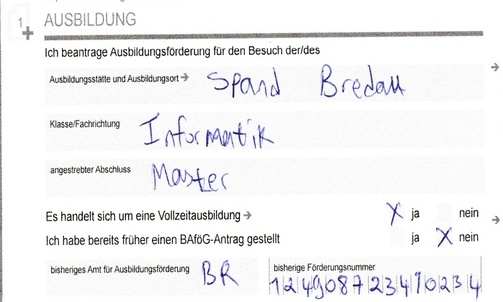 1 AUSBILDUNG
Ich beantrage Ausbildungsförderung für den Besuch der/des
Ausbildungsstätte und Ausbildungsort → Spand Bredau
Klasse/Fachrichtung Informatik
angestrebter Abschluss Master
Es handelt sich um eine Vollzeitausbildung → X ja nein
Ich habe bereits früher einen BAföG-Antrag gestellt ja X nein
bisheriges Amt für Ausbildungsförderung BR bisherige Förderungsnummer
124908723410234